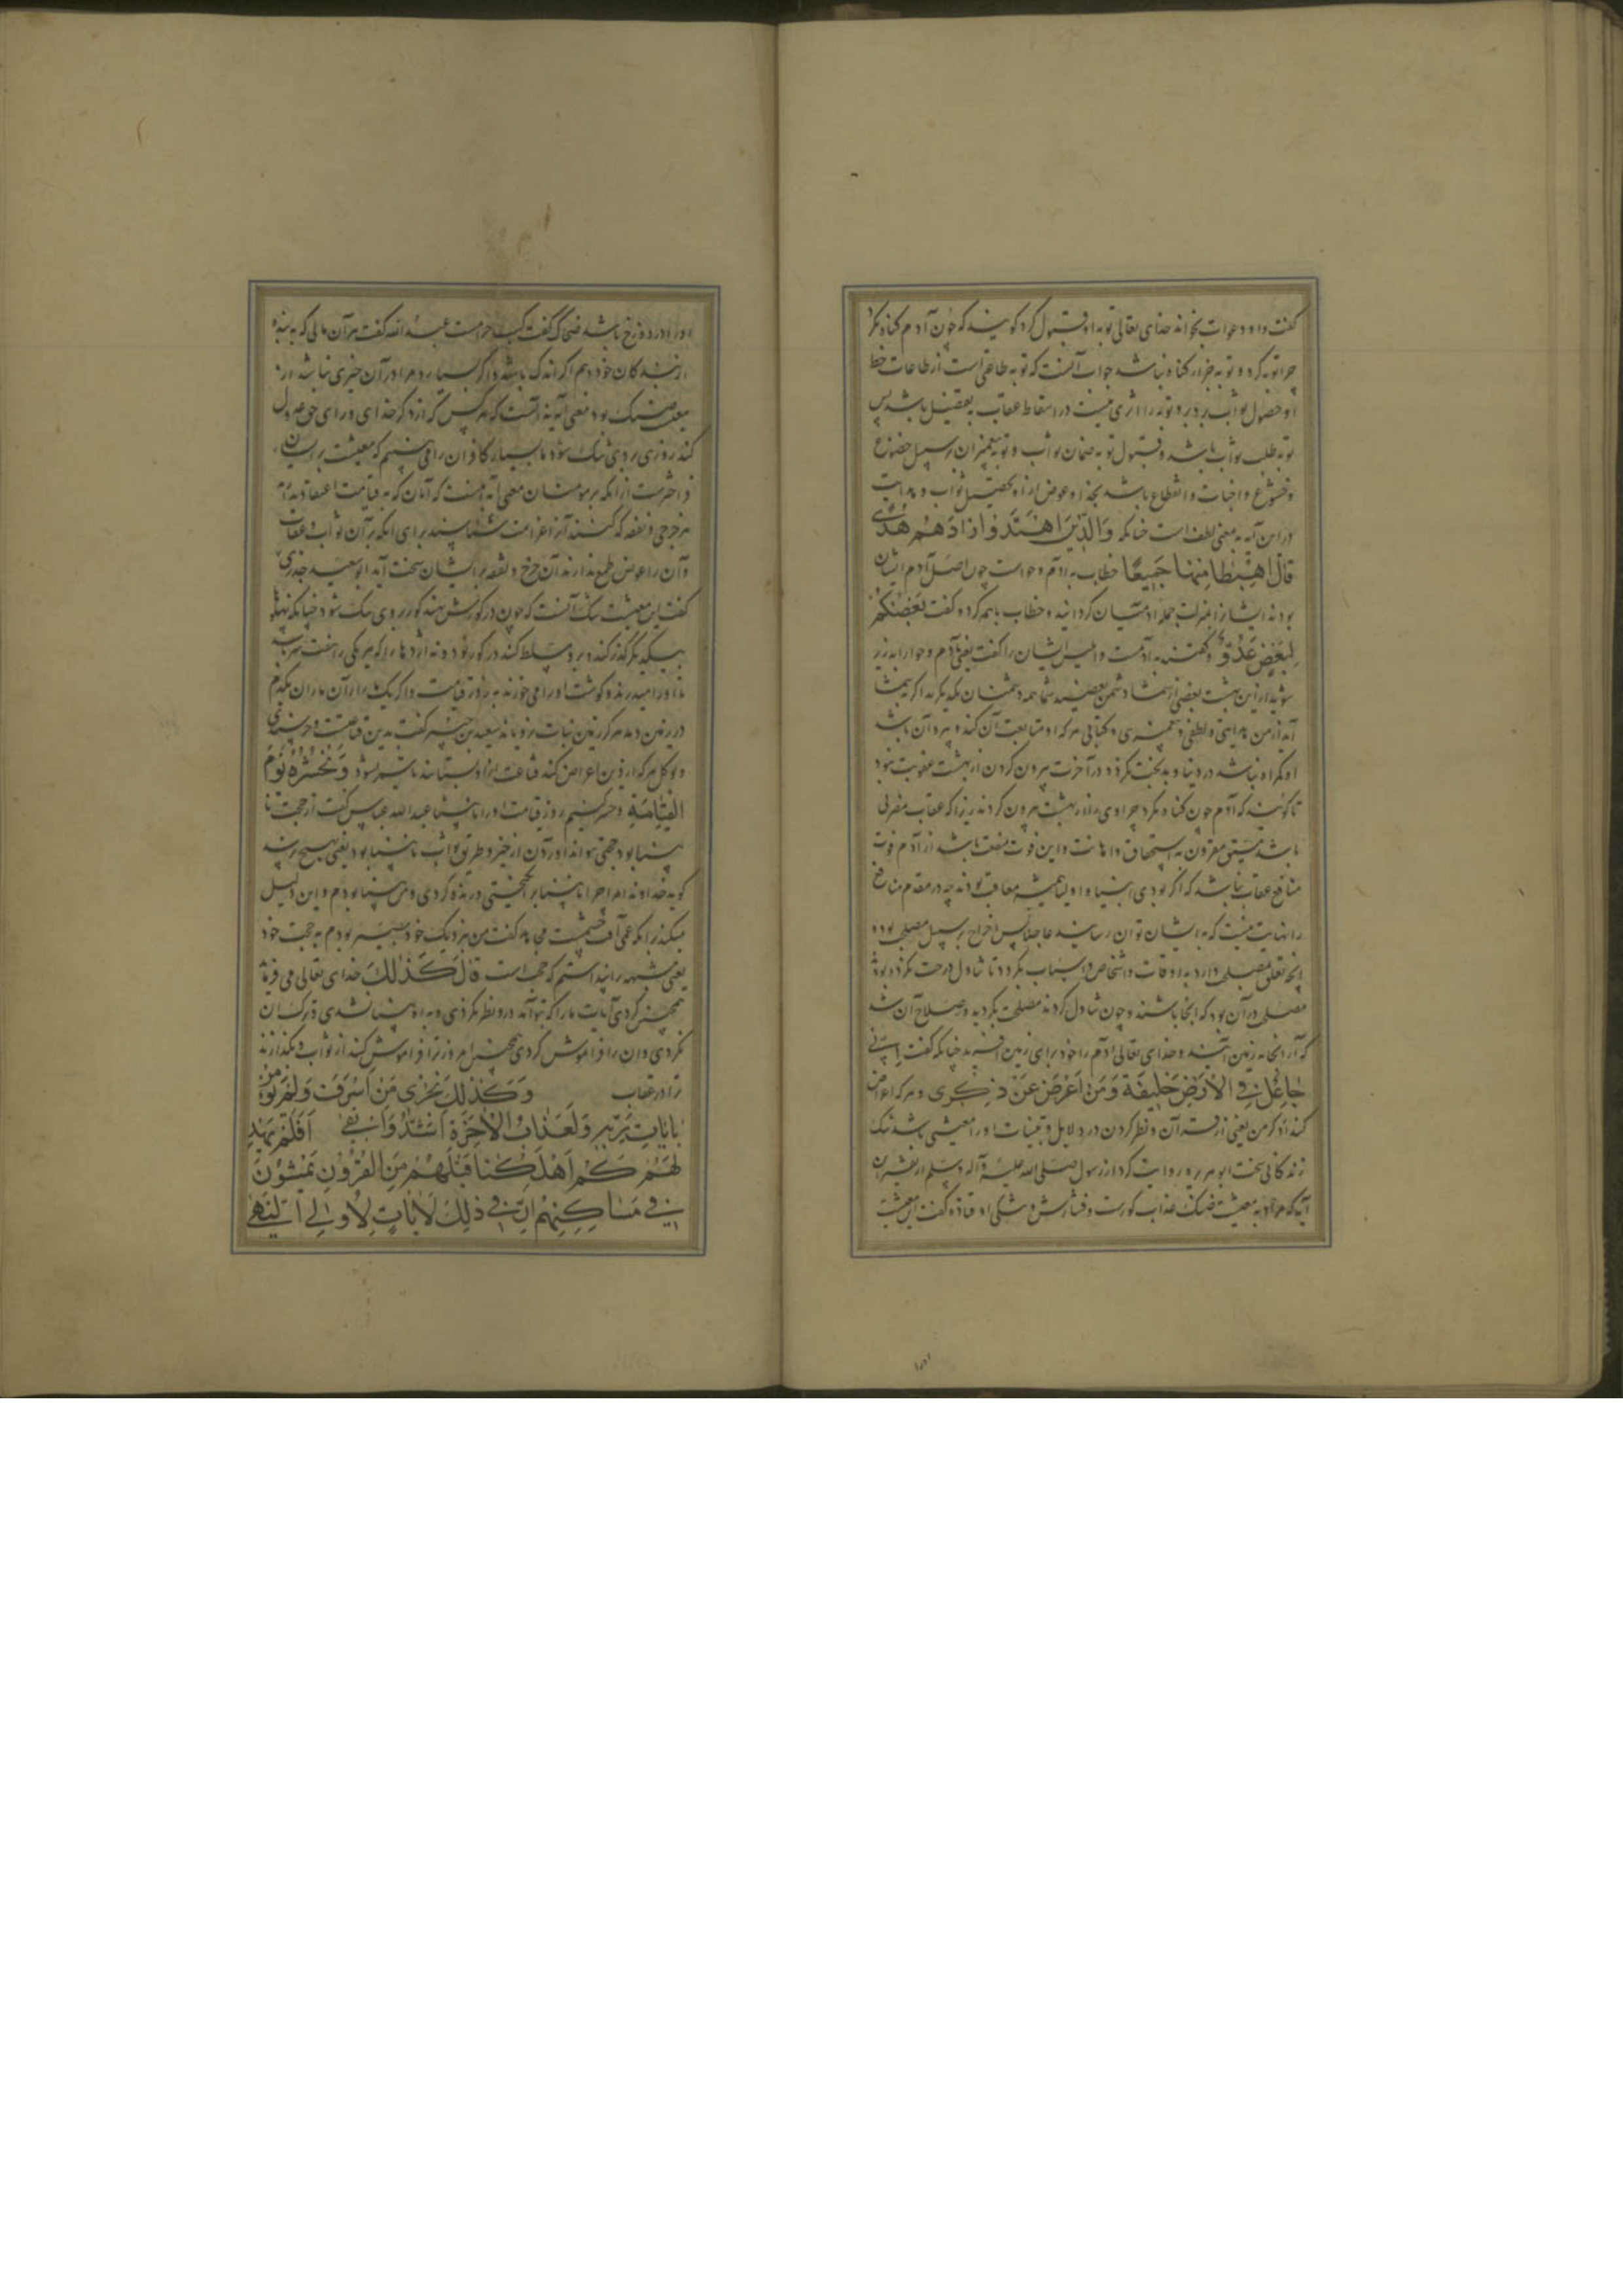 گفت و او دعوات بخواند خدای تعالی توبه او قبول کرد گویند که چون آدم گناه نکرد
چرا توبه کرد و توبه جز از گناه نباشد جواب آنست که توبه طاعتی است از طاعات حظ
او حصول ثواب بود و توبه را اثری نیست در اسقاط عقاب بتفضل باشد پس
توبه طلب ثواب باشد و قبول توبه ضمان ثواب و توبه پیغمبران بر سبیل خضوع
و خشوع و اخبات و انقطاع باشد بخدا و عوض از او تحصیل ثواب و هدایت
در این آیه به معنی لطف است چنانکه وَالَّذِينَ اهْتَدَوْا زَادَهُمْ هُدًى
قَالَ اهْبِطَا مِنْهَا جَمِيعًا خطاب به آدم و حواست چون اصل آدم ایشان
بودند ایشانرا بمنزلت جمله آدمیان گردانید و خطاب باهم کرد و گفت بَعْضُكُمْ
لِبَعْضٍ عَدُوٌّ و گفتند به آدمست و ابلیس ایشان را گفت یعنی آدم و حوا را بزیر
شوید از این بهشت بعضی از شما دشمن بعضی شما همه دشمنان یکدیگرید اگر به شما
آید از من هدایتی و لطفی و پیغمبری و کتابی هر که او متابعت آن کند و پیرو آن باشد
او گمراه نباشد در دنیا و بدبخت نگردد در آخرت بیرون کردن از بهشت عقوبت نبود
تا گویند که آدم چون گناه نکرد چرا وی را از بهشت بیرون کردند زیرا که عقاب مضرتی
باشد مستحق مقرون به استحقاق و اهانت و این فوت منفعت باشد از آدم فوت
منافع عقاب نباشد که اگر بودی انبیا و اولیا همیشه معاقب بودند چه در مقدم منافع
را نهایت نیست که به ایشان توان رسانید عاجلا پس اخراج بر سبیل مصلحت بود و
آنچه تعلق بمصلحت دارد به اوقات و اشخاص و اسباب بگردد تا تناول درخت نکرده بود
مصلحت در آن بود که آنجا باشند و چون تناول کردند مصلحت بگردید و صلاح آن شد
که از آنجا به زمین آیند و خدای تعالی آدم را خود برای زمین آفرید چنانکه گفت إِنِّي
جَاعِلٌ فِي الْأَرْضِ خَلِيفَةً وَمَنْ أَعْرَضَ عَنْ ذِكْرِي و هر که اعراض
کند از ذکر من یعنی از قرآن و نظر کردن در دلایل و بینات او را معیشتی باشد تنگ
زندگانی سخت ابو هریره روایت کرد از رسول صلی الله علیه و آله و سلم از تفسیر این
آیه که مراد به معیشت ضنک عذاب گورست و فشارش و تنگی او قتاده گفت این معیشت
او را در دوزخ باشد ضحاک گفت کسب حرامست عبد الله گفت هر آن مالی که به بنده
از بندگان خود دهم اگر اندک باشد و اگر بسیار و مرا در آن چیزی نباشد آن
معیشت ضنک بود معنی آیه آنست که هر کس که از ذکر خدای و رای حق عدول
کند روزی بر وی تنگ شود ما بسیار کافران را می بینیم که معیشت بر ایشان
فراخترست از آنکه بر مومنان معنی آیه آنست که آنان که به قیامت اعتقاد ندارند
هر خرجی و نفقه که کنند آنرا غرامت شناسند برای آنکه بر آن ثواب و عقاب
و آن را عوض طمع ندارند آن خرج و نفقه بر ایشان سخت آید ابو سعید خدری
گفت این معیشت تنگ آنست که چون در گورش نهند گور بر وی تنگ شود چنانکه پهلو
بیکدیگر گذر کند و بر و مسلط کند در گور نود و نه اژدها را که هر یکی را هفت سر باشد
تا او را میدرند و گوشت او را می خورند به روز قیامت و اگر یک مار از آن ماران بکدم
در زمین دمد هرگز زمین نبات نرویاند سعید بن جبیر گفت بدین قناعتست و خرسندی
و توکل هر که از دین اعراض کند قناعت از او بستانند تا سیر نشود وَنَحْشُرُهُ يَوْمَ
الْقِيَامَةِ و حشر کنیم روز قیامت او را نابینا عبد الله عباس گفت از حجت نا
بینا بود حجتی نتواند آوردن از خیر و طریق ثواب نابینا بود یعنی بهیچ نرسد
گوید خداوندا مرا چرا نابینا برانگیختی و زنده کردی و من بینا بودم و این دلیل
میکند بر آنکه عمی آفت چشمست مجاهد گفت من بنزدیک خود بصیر بودم به حجت خود
یعنی شبهه را پنداشتم که حجت است قَالَ كَذَلِكَ خدای تعالی می فرماید
همچنین کردی آیات ما را که بتو آمد در و نظر نکردی و به او بینا نشدی و ترک آن
کردی و آن را فراموش کردی همچنین امروز ترا فراموش کنند از ثواب و بگذارند
ترا در عقاب وَكَذَلِكَ نَجْزِي مَنْ أَسْرَفَ وَلَمْ يُؤْمِنْ
بِآيَاتِ رَبِّهِ وَلَعَذَابُ الْآخِرَةِ أَشَدُّ وَأَبْقَى أَفَلَمْ يَهْدِ
لَهُمْ كَمْ أَهْلَكْنَا قَبْلَهُمْ مِنَ الْقُرُونِ يَمْشُونَ
فِي مَسَاكِنِهِمْ إِنَّ فِي ذَلِكَ لَآيَاتٍ لِأُولِي النُّهَى